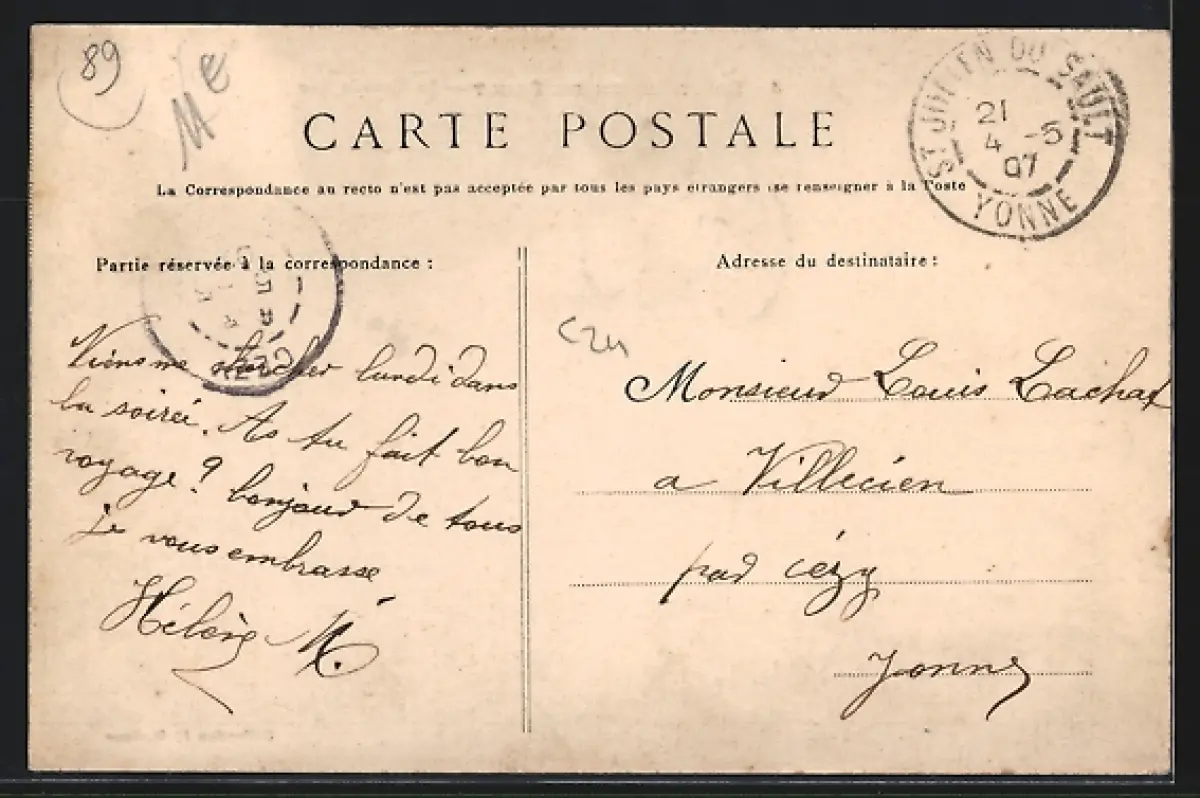 89
Me
CARTE POSTALE
La Correspondance au recto n'est pas acceptée par tous les pays étrangers (se renseigner à la Poste
ST JULIEN DU SAULT
21
4 -5
07
YONNE
Partie réservée à la correspondance :
Viens me chercher lundi dans
la soireé. As tu fait bon
voyage ? bonjour de tous
je vous embrasse
Hélène M.
Adresse du destinataire :
Monsieur Louis Lachat
a Villecien
par cézy
Yonne